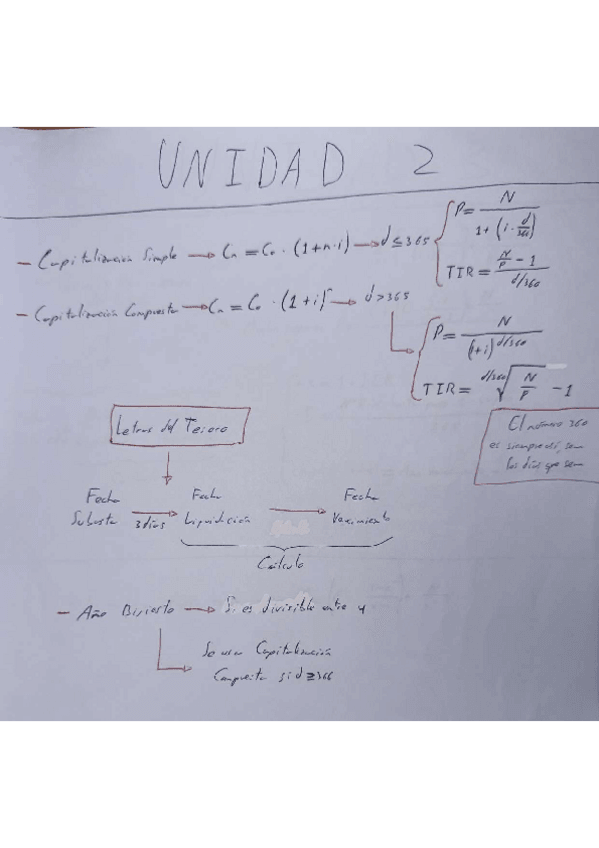 UNIDAD 2
- Capitalización Simple → Cn = Co · (1+n·i) → d ≤ 365
P = N / 1 + (i · d/360)
TIR = N/P - 1 / d/360
- Capitalización Compuesta → Cn = Co · (1+i)^n → d > 365
P = N / (1+i)^d/360
TIR = d/360√N/P - 1
El número 360
es siempre así, sean
los días que sean
Letras del Tesoro
Fecha Subasta → 3 días → Fecha Liquidación → Fecha Vencimiento
Cálculo
- Año Bisiesto → Si es divisible entre 4
Se usa Capitalización
Compuesta si d ≥ 366